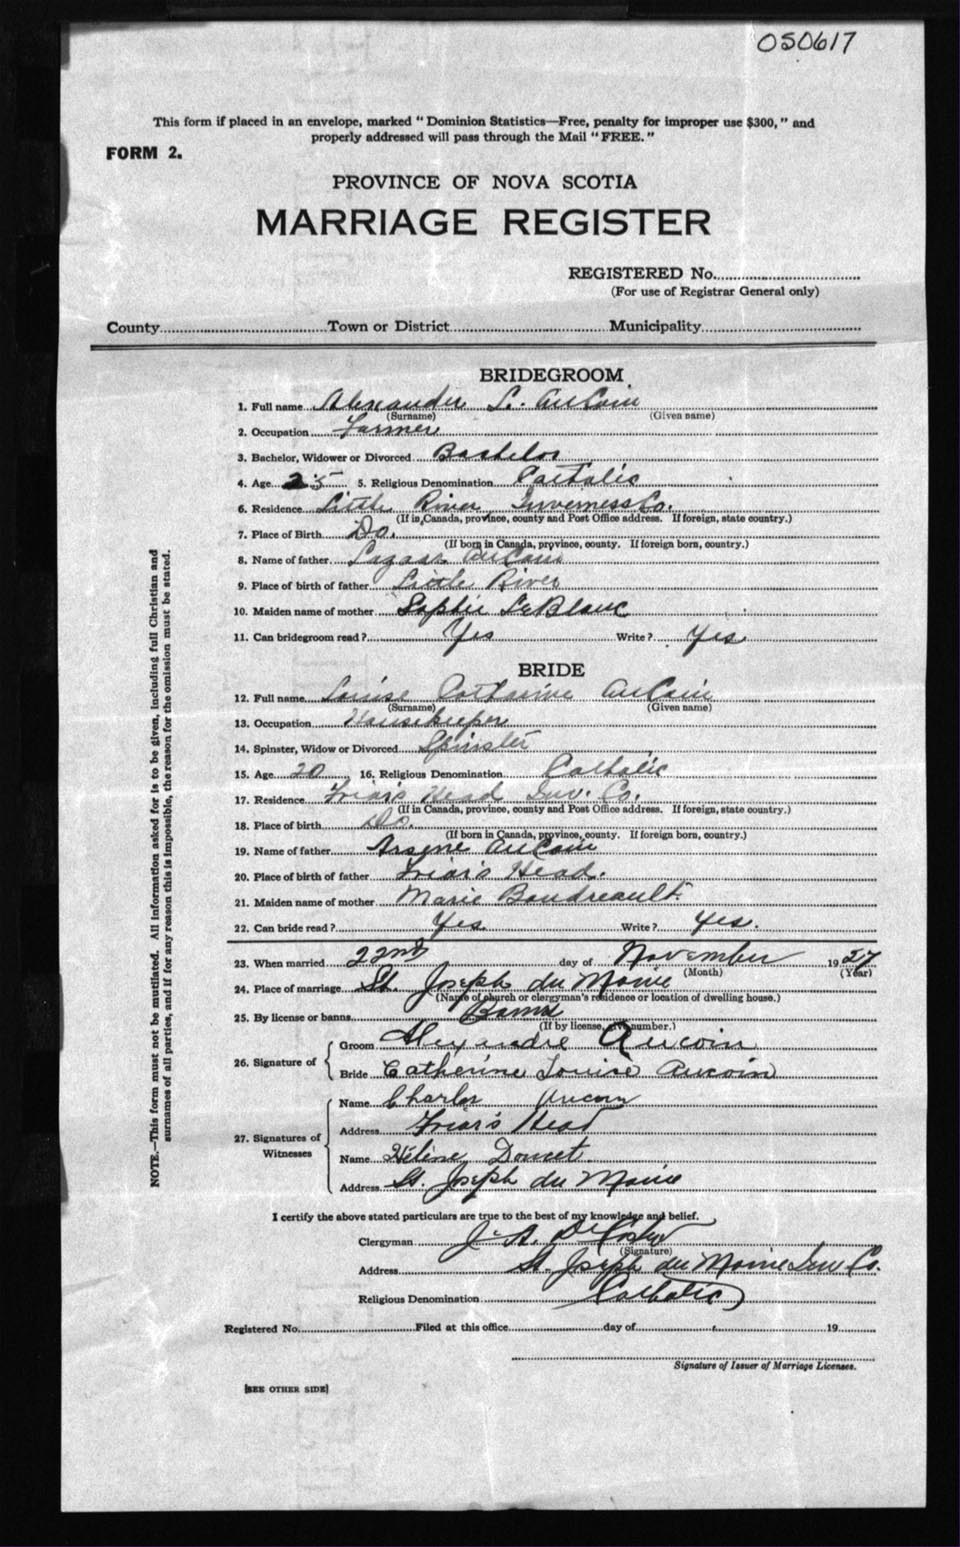 050617
This form if placed in an envelope, marked "Dominion Statistics—Free, penalty for improper use $300," and
properly addressed will pass through the Mail "FREE."
FORM 2.
PROVINCE OF NOVA SCOTIA
MARRIAGE REGISTER
REGISTERED No.
(For use of Registrar General only)
County Town or District Municipality
BRIDEGROOM
1. Full name Alexander L. AuCoin
(Surname) (Given name)
2. Occupation Farmer
3. Bachelor, Widower or Divorced Bachelor
4. Age 25 5. Religious Denomination Catholic
6. Residence Little River Inverness Co.
(If in Canada, province, county and Post Office address. If foreign, state country.)
7. Place of Birth Do.
(If born in Canada, province, county. If foreign born, country.)
8. Name of father AuCoin
9. Place of birth of father Little River
10. Maiden name of mother Sophie LeBlanc
11. Can bridegroom read? Yes Write? Yes
BRIDE
12. Full name Louise Catherine AuCoin
(Surname) (Given name)
13. Occupation Housekeeper
14. Spinster, Widow or Divorced Spinster
15. Age 20 16. Religious Denomination Catholic
17. Residence Friar's Head Inv. Co.
(If in Canada, province, county and Post Office address. If foreign, state country.)
18. Place of birth Do.
(If born in Canada, province, county. If foreign born, country.)
19. Name of father Arsene AuCoin
20. Place of birth of father Friar's Head.
21. Maiden name of mother Marie Boudreault
22. Can bride read? Yes Write? Yes.
23. When married 22nd day of November 1927
(Month) (Year)
24. Place of marriage St. Joseph du Moine
(Name of church or clergyman's residence or location of dwelling house.)
25. By license or banns Banns
(If by license, give number.)
26. Signature of
Groom Alexandre Aucoin
Bride Catherine Louise Aucoin
27. Signatures of Witnesses
Name Charles Aucoin
Address Friar's Head
Name Hélène Doucet.
Address St. Joseph du Moine
I certify the above stated particulars are true to the best of my knowledge and belief.
Clergyman J. A. DeCoste
(Signature)
Address St. Joseph du Moine Inv Co.
Religious Denomination Catholic
Registered No. Filed at this office day of 19
Signature of Issuer of Marriage Licenses.
[SEE OTHER SIDE]
NOTE.—This form must not be mutilated. All information asked for is to be given, including full Christian and
surnames of all parties, and if for any reason this is impossible, the reason for the omission must be stated.